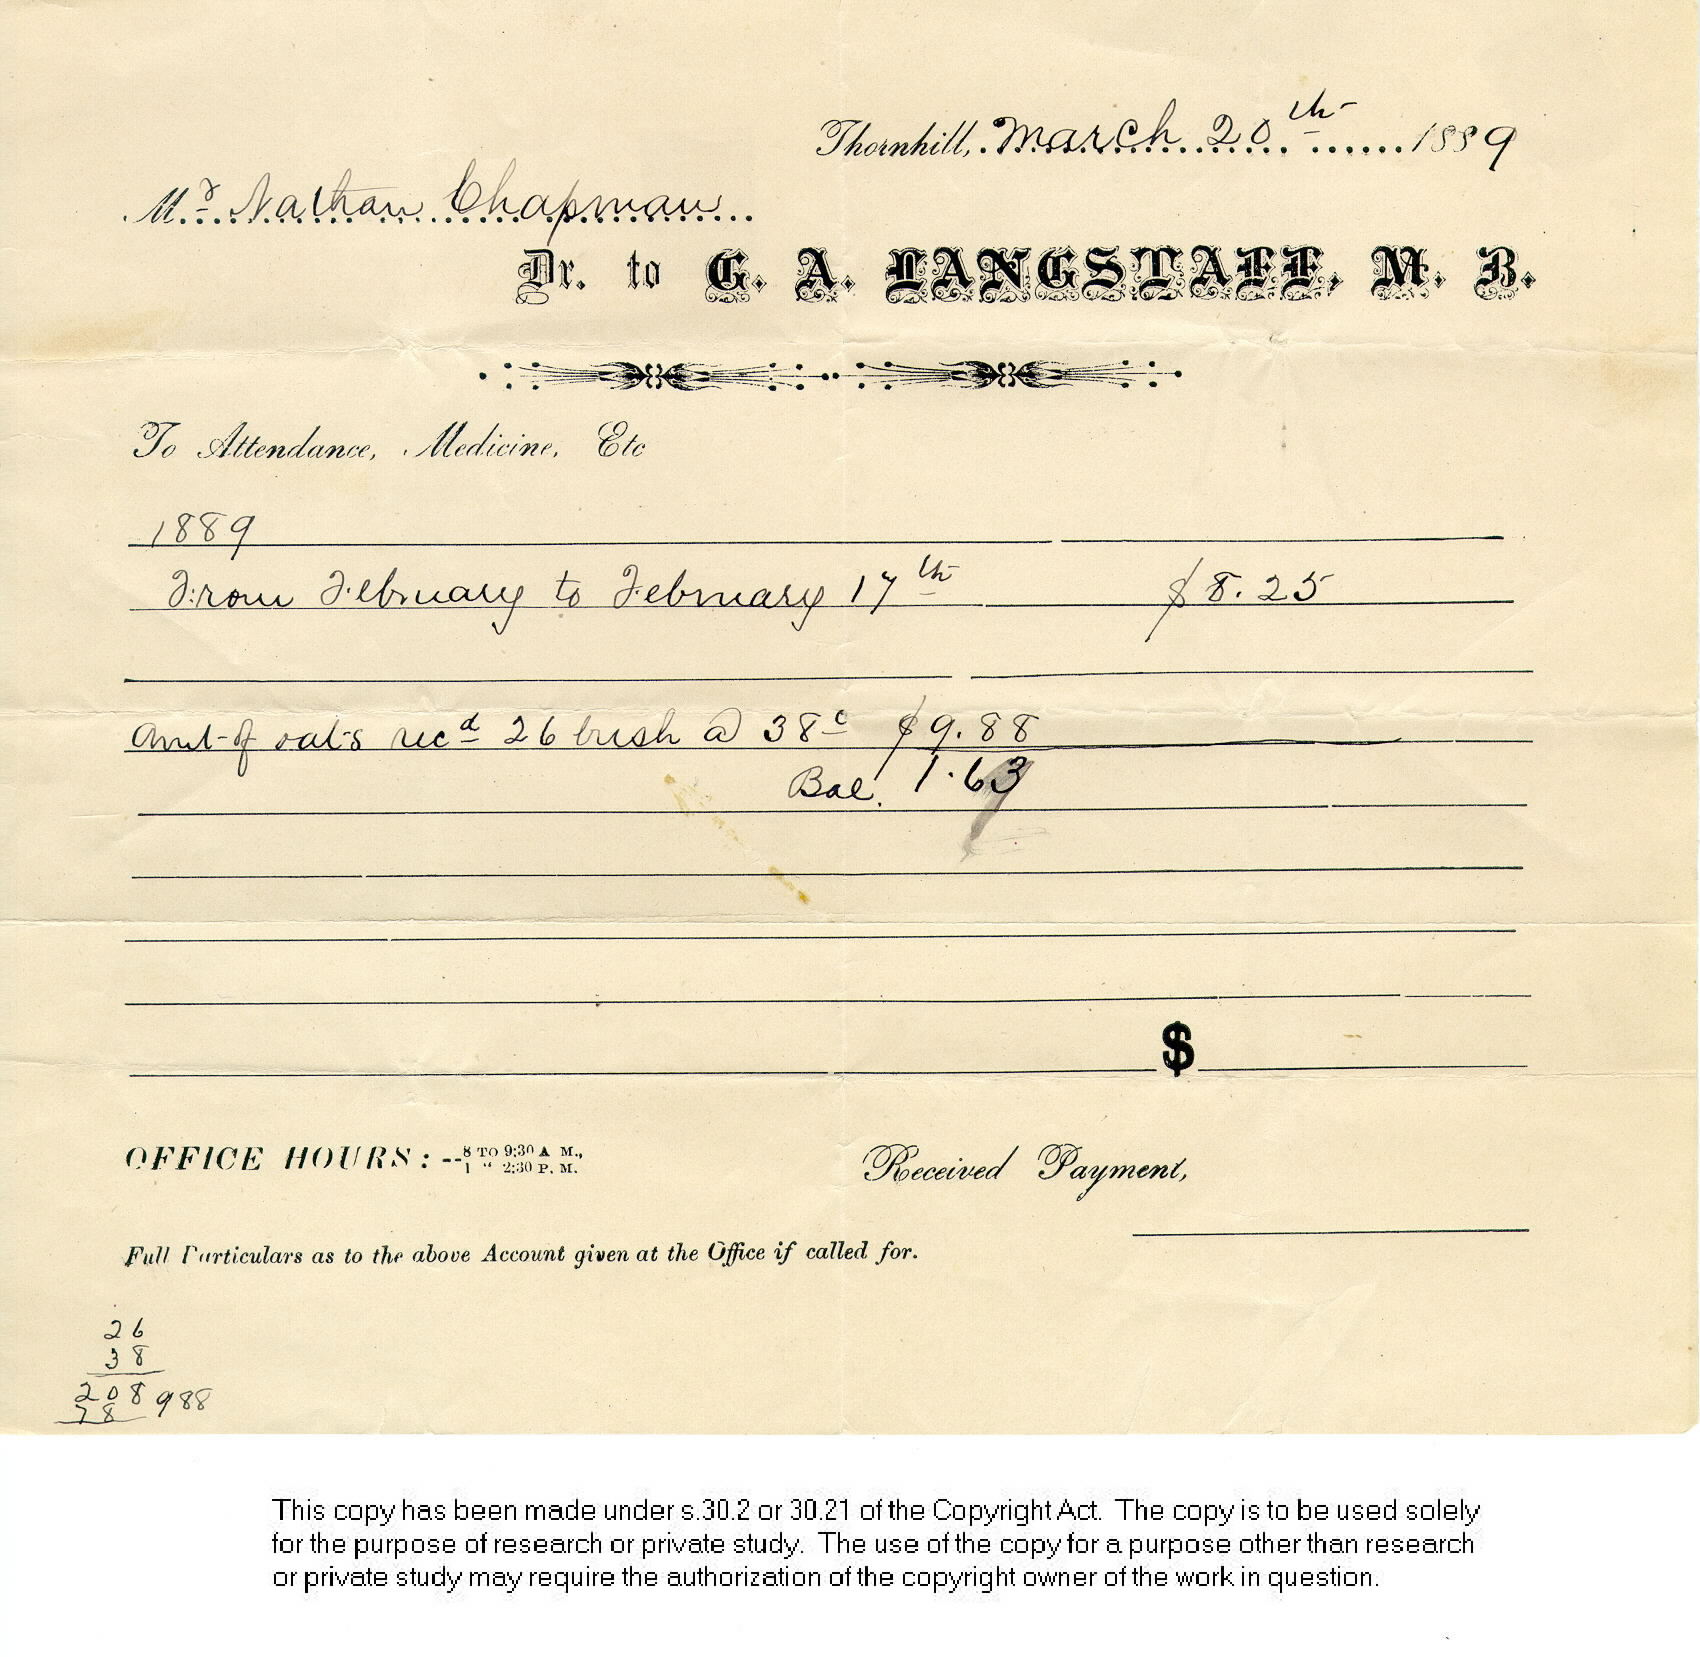 Thornhill, March 20th 1889
Mr Nathan Chapman
Dr. to G. A. LANGSTAFF, M. B.
To Attendance, Medicine, Etc
1889
From February to February 17th $8.25
Amt of oats recd 26 bush @ 38c $9.88
Bal. 1.63
$
OFFICE HOURS: --8 TO 9:30 A M.,
1 " 2:30 P. M.
Received Payment,
Full Particulars as to the above Account given at the Office if called for.
26
38
208
78 988
This copy has been made under s.30.2 or 30.21 of the Copyright Act. The copy is to be used solely
for the purpose of research or private study. The use of the copy for a purpose other than research
or private study may require the authorization of the copyright owner of the work in question.